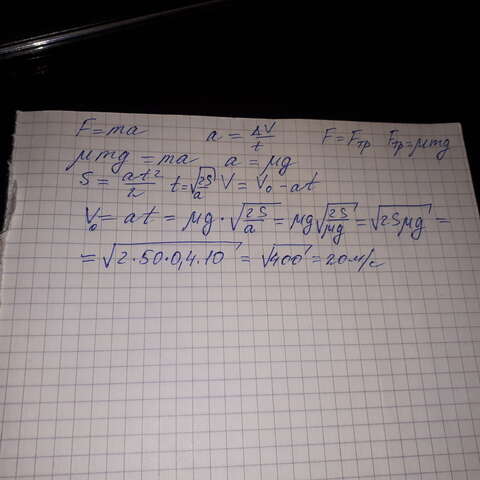 F=ma a = ΔV/t F=Fтр Fтр=μmg
μmg = ma a = μg
S = at²/2 t=√(2S/a) V = V₀ - at
V₀ = at = μg·√(2S/a) = μg√(2S/μg) = √(2Sμg) =
= √(2·50·0,4·10) = √400 = 20 м/с